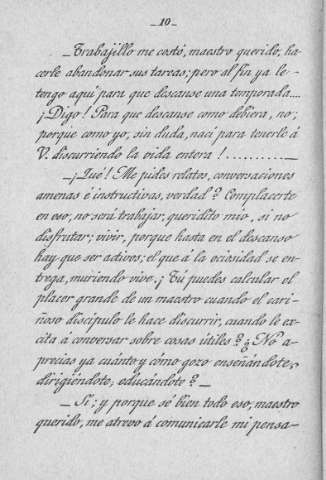 -10-
-Trabajillo me costó, maestro querido, ha-
cerle abandonar sus tareas; pero al fin ya le
tengo aquí para que descanse una temporada....
¡Digo! Para que descanse como debiera, no;
porque como yo, sin duda, nací para tenerle á
V. discurriendo la vida entera!..........-
-¡Qué! ¿Me pides relatos, conversaciones
amenas é instructivas, verdad? Complacerte
en eso, no será trabajar, queridito mío, si no
disfrutar; vivir, porque hasta en el descanso
hay que ser activos; el que á la ociosidad se en-
trega, muriendo vive. ¡Tú puedes calcular el
placer grande de un maestro cuando el cari-
ñoso discípulo le hace discurrir, cuando le ex-
cita á conversar sobre cosas útiles? ¿No a-
precias ya cuánto y cómo gozo enseñándote,
dirigiéndote, educándote?-
-Sí; y porque sé bien todo eso, maestro
querido, me atrevo á comunicarle mi pensa-